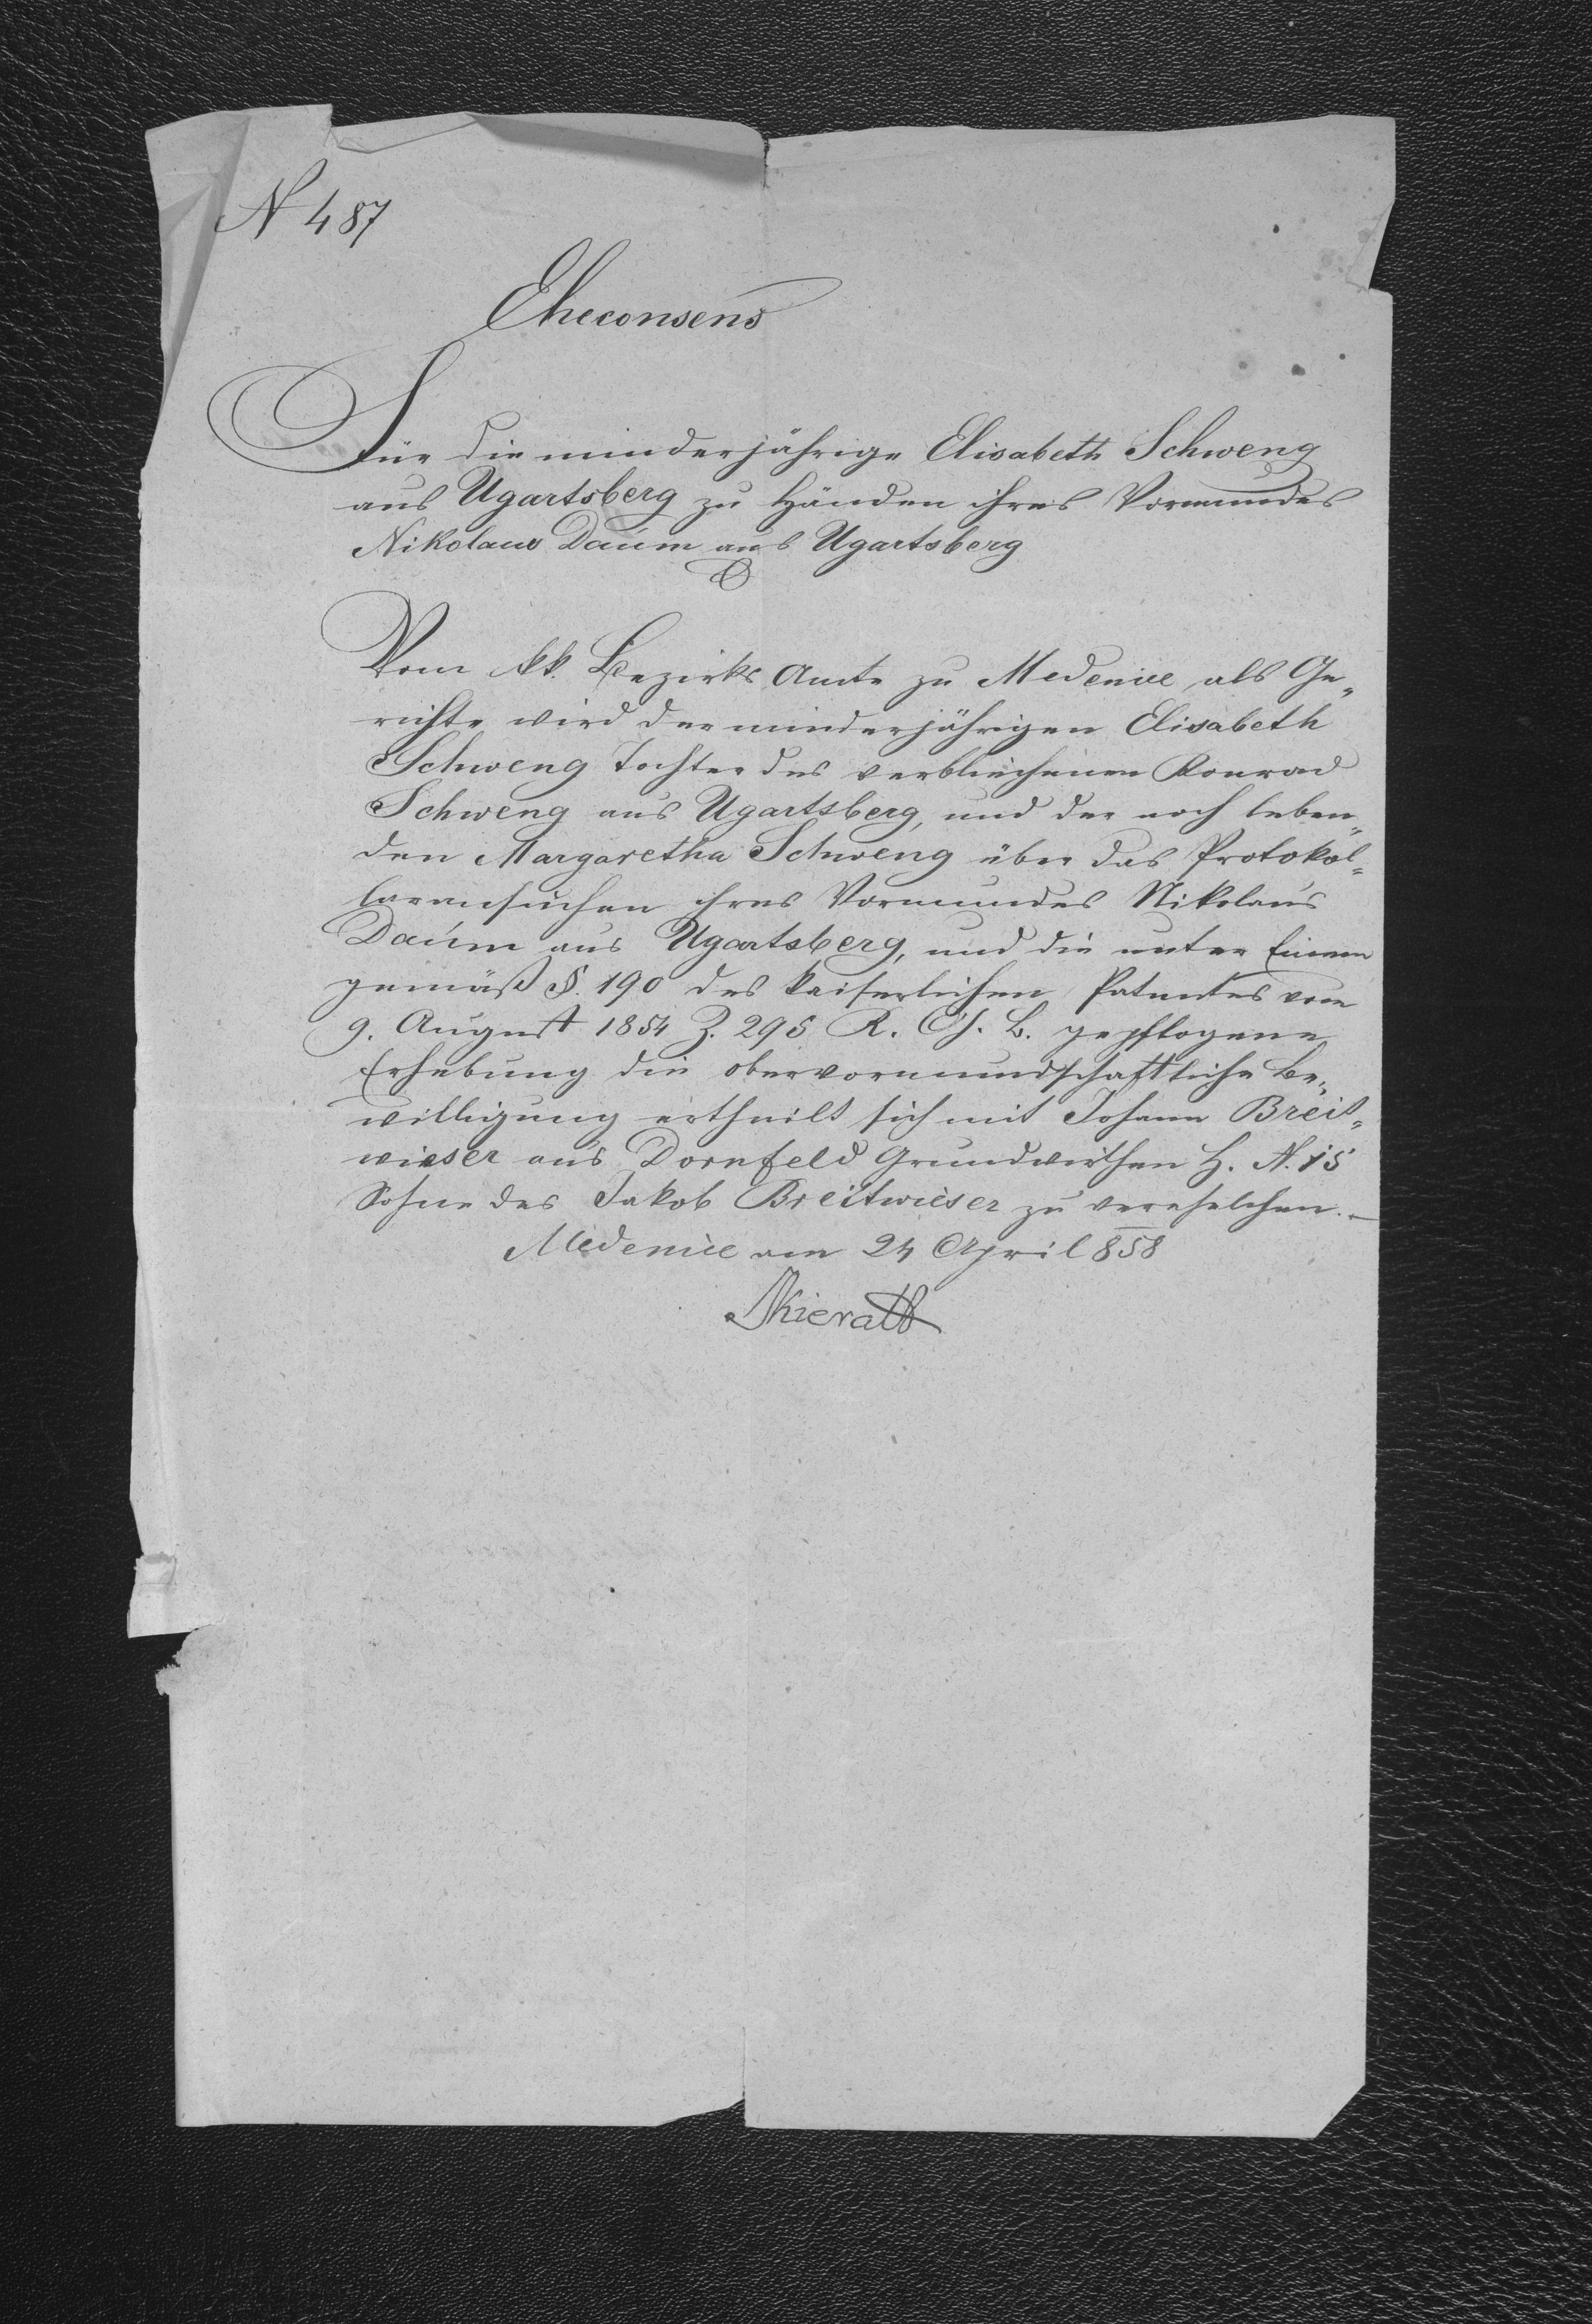 N 487
Eheconsens
Für die minderjährige Elisabeth Schweng
aus Ugartsberg zu Händen ihres Vormundes
Nikolaus Daum aus Ugartsberg
Vom kk. Bezirks Amte zu Medenice als Ge„
richte wird der minderjährigen Elisabeth
Schweng Tochter des verblichenen Konrad
Schweng aus Ugartsberg, und der noch leben„
den Margaretha Schweng über das Protokol=
laransuchen ihres Vormundes Nikolaus
Daum aus Ugartsberg, und die unter Einem
gemäß §. 190 des kaiserlichen Patentes vom
9. August 1854 Z. 295 R. G. B. gepflogene
Erhebung die obervormundschaftliche Be„
willigung ertheilt sich mit Johann Breit=
wieser aus Dornfeld Grundwirthen H. N. 15
Sohne des Jakob Breitwieser zu verehelichen. —
Medenice am 24 April 858